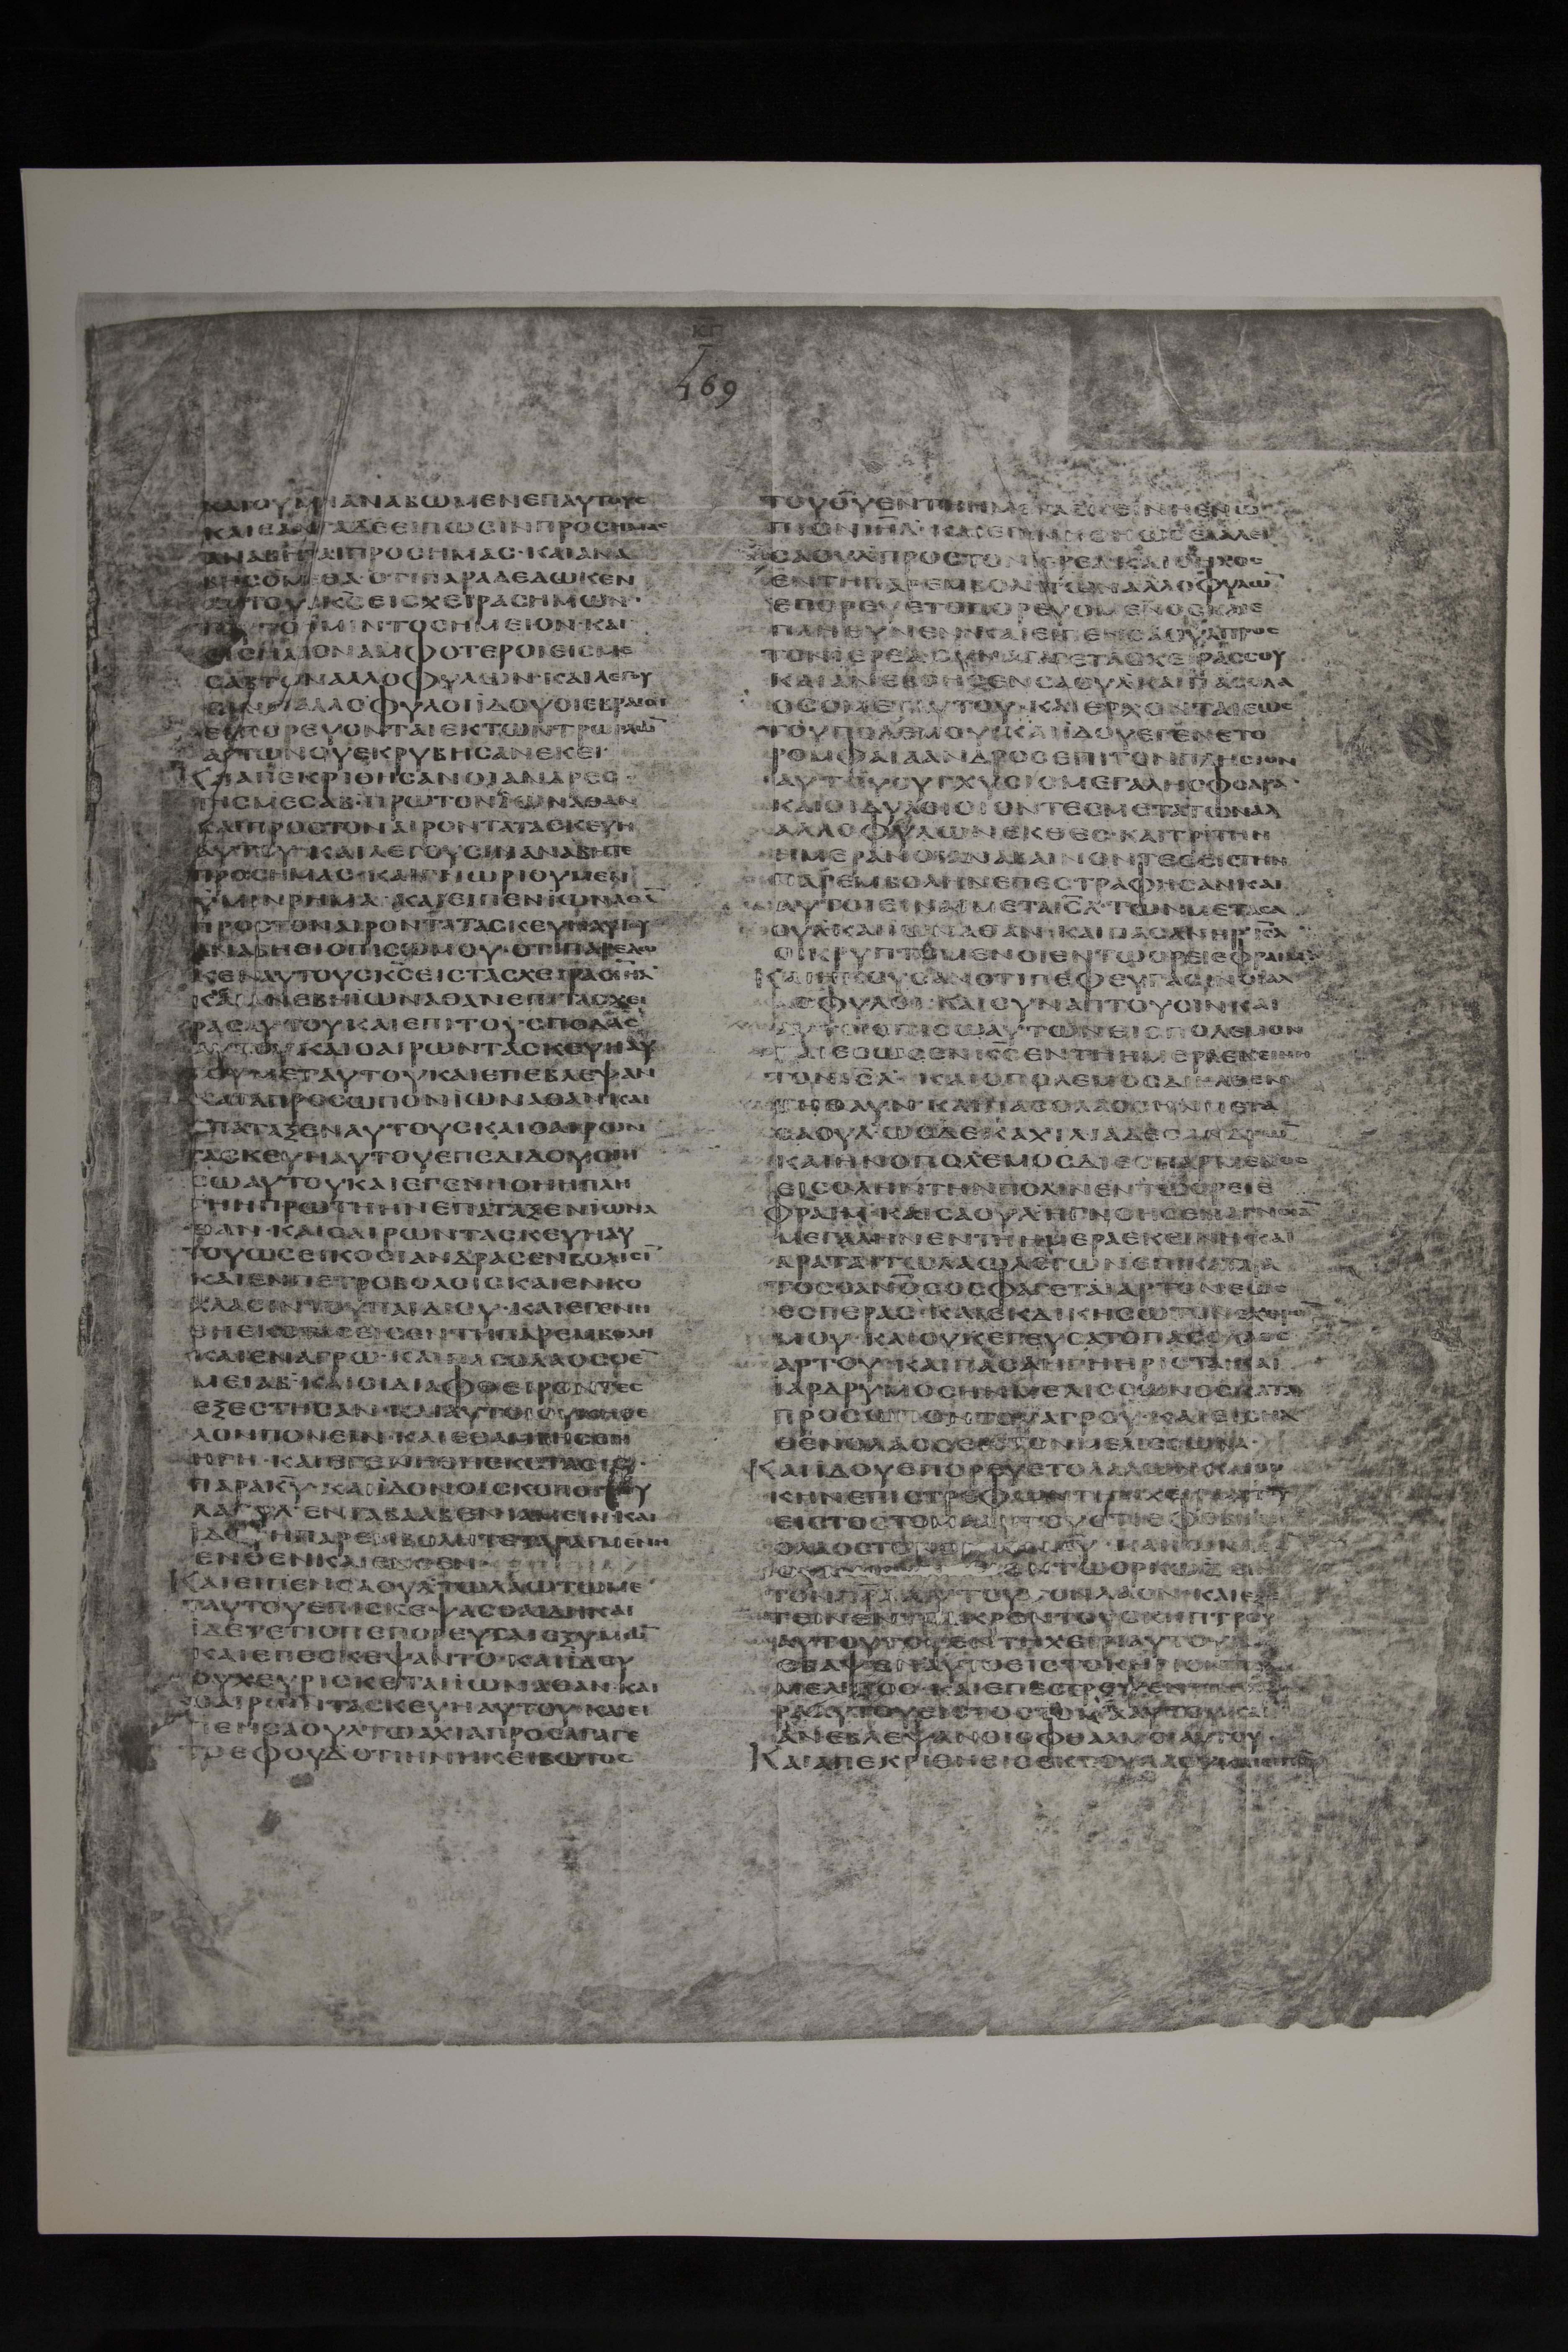 ΚΠ
169
ΚΑΙΟΥΜΗΑΝΑΒΩΜΕΝΕΠΑΥΤΟΥΣ
ΚΑΙΕΑΝΤΑΔΕΕΙΠΩΣΙΝΠΡΟΣΗΜΑΣ
ΑΝΑΒΗΤΑΙΠΡΟΣΗΜΑΣ·ΚΑΙΑΝΑ
ΒΗΣΟΜΕΘΑ·ΟΤΙΠΑΡΑΔΕΔΩΚΕΝ
ΑΥΤΟΥΣΚΣΕΙΣΧΕΙΡΑΣΗΜΩΝ·
ΤΟΥΤΟΗΜΙΝΤΟΣΗΜΕΙΟΝ·ΚΑΙ
ΕΙΣΗΛΘΟΝΑΜΦΟΤΕΡΟΙΕΙΣΜΕ
ΣΑΒΤΩΝΑΛΛΟΦΥΛΩΝ·ΚΑΙΛΕΓΟΥ
ΣΙΝΟΙΑΛΛΟΦΥΛΟΙΙΔΟΥΟΙΕΒΡΑΙΟΙ
ΕΚΠΟΡΕΥΟΝΤΑΙΕΚΤΩΝΤΡΩΓΛΩ
ΑΥΤΩΝΟΥΕΚΡΥΒΗΣΑΝΕΚΕΙ·
ΚΑΙΑΠΕΚΡΙΘΗΣΑΝΟΙΑΝΔΡΕΣ
ΤΗΣΜΕΣΑΒ·ΠΡΩΤΟΝΙΩΝΑΘΑΝ
ΚΑΙΠΡΟΣΤΟΝΑΙΡΟΝΤΑΤΑΣΚΕΥΗ
ΑΥΤΟΥ·ΚΑΙΛΕΓΟΥΣΙΝΑΝΑΒΗΤΕ
ΠΡΟΣΗΜΑΣ·ΚΑΙΓΝΩΡΙΟΥΜΕΝ
ΥΜΙΝΡΗΜΑ·ΚΑΙΕΙΠΕΝΙΩΝΑΘΑ
ΠΡΟΣΤΟΝΑΙΡΟΝΤΑΤΑΣΚΕΥΗΑΥΤΟΥ
ΑΝΑΒΗΘΙΟΠΙΣΩΜΟΥ·ΟΤΙΠΑΡΕΔΩ
ΚΕΝΑΥΤΟΥΣΚΣΕΙΣΤΑΣΧΕΙΡΑΣΙΗΛ
ΚΑΙΑΝΕΒΗΙΩΝΑΘΑΝΕΠΙΤΑΣΧΕΙ
ΡΑΣΑΥΤΟΥΚΑΙΕΠΙΤΟΥΣΠΟΔΑΣ
ΑΥΤΟΥΚΑΙΟΑΙΡΩΝΤΑΣΚΕΥΗΑΥ
ΤΟΥΜΕΤΑΥΤΟΥΚΑΙΕΠΕΒΛΕΨΑΝ
ΚΑΤΑΠΡΟΣΩΠΟΝΙΩΝΑΘΑΝΚΑΙ
ΕΠΑΤΑΞΕΝΑΥΤΟΥΣΚΑΙΟΑΙΡΩΝ
ΤΑΣΚΕΥΗΑΥΤΟΥΕΠΕΔΙΔΟΥΟΠΙ
ΣΩΑΥΤΟΥΚΑΙΕΓΕΝΗΘΗΗΠΛΗ
ΓΗΗΠΡΩΤΗΗΝΕΠΑΤΑΞΕΝΙΩΝΑ
ΘΑΝ·ΚΑΙΟΑΙΡΩΝΤΑΣΚΕΥΗΑΥ
ΤΟΥΩΣΕΙΚΟΣΙΑΝΔΡΑΣΕΝΒΟΛΙΣΙ
ΚΑΙΕΝΠΕΤΡΟΒΟΛΟΙΣΚΑΙΕΝΚΟ
ΧΛΑΞΙΝΤΟΥΠΑΙΔΙΟΥ·ΚΑΙΕΓΕΝΗ
ΘΗΕΚΣΤΑΣΕΙΣΕΝΤΗΠΑΡΕΜΒΟΛΗ
ΚΑΙΕΝΑΓΡΩ·ΚΑΙΠΑΣΟΛΑΟΣΟΕ
ΜΕΣΑΒ·ΚΑΙΟΙΔΙΑΦΘΕΙΡΟΝΤΕΣ
ΕΞΕΣΤΗΣΑΝ·ΚΑΙΑΥΤΟΙΟΥΚΗΘΕ
ΛΟΝΠΟΝΕΙΝ·ΚΑΙΕΘΑΜΒΗΣΕΝΗ
ΗΓΗ·ΚΑΙΕΓΕΝΗΘΗΕΚΣΤΑΣΙΣ·
ΠΑΡΑΚΥ·ΚΑΙΙΔΟΝΟΙΣΚΟΠΟΙΤΟΥ
ΣΑΟΥΛ·ΕΝΓΑΒΑΑΒΕΝΙΑΜΕΙΝ·ΚΑΙ
ΙΔΟΥΗΠΑΡΕΜΒΟΛΗΤΕΤΑΡΑΓΜΕΝΗ
ΕΝΘΕΝΚΑΙΕΝΘΕΝ·
ΚΑΙΕΙΠΕΝΣΑΟΥΛΤΩΛΑΩΤΩΜΕ
ΤΑΥΤΟΥΕΠΙΣΚΕΨΑΣΘΑΙΔΗΚΑΙ
ΙΔΕΤΕΤΙΣΠΕΠΟΡΕΥΤΑΙΕΞΥΜΩ
ΚΑΙΕΠΕΣΚΕΨΑΝΤΟ·ΚΑΙΙΔΟΥ
ΟΥΧΕΥΡΙΣΚΕΤΑΙΙΩΝΑΘΑΝ·ΚΑΙ
ΟΑΙΡΩΝΤΑΣΚΕΥΗΑΥΤΟΥ·ΚΑΙΕΙ
ΠΕΝΣΑΟΥΛΤΩΑΧΙΑΠΡΟΣΑΓΑΓΕ
ΤΟΕΦΟΥΔΟΤΙΗΝΗΚΕΙΒΩΤΟΣ
ΤΟΥΘΥΕΝΤΗΗΜΕΡΑΕΚΕΙΝΗΕΝΩ
ΠΙΟΝΙΗΛ·ΚΑΙΕΓΕΝΗΘΗΩΣΕΛΑΛΕΙ
ΣΑΟΥΛΠΡΟΣΤΟΝΙΕΡΕΑ·ΚΑΙΟΗΧΟΣ
ΕΝΤΗΠΑΡΕΜΒΟΛΗΤΩΝΑΛΛΟΦΥΛΩ
ΕΠΟΡΕΥΕΤΟΠΟΡΕΥΟΜΕΝΟΣΚΑΙΕ
ΠΛΗΘΥΝΕΝ·ΚΑΙΕΙΠΕΝΣΑΟΥΛΠΡΟΣ
ΤΟΝΙΕΡΕΑΣΥΝΑΓΑΓΕΤΑΣΧΕΙΡΑΣΣΟΥ
ΚΑΙΑΝΕΒΟΗΣΕΝΣΑΟΥΛ·ΚΑΙΠΑΣΟΛΑ
ΟΣΟΜΕΤΑΥΤΟΥ·ΚΑΙΕΡΧΟΝΤΑΙΕΩΣ
ΤΟΥΠΟΛΕΜΟΥ·ΚΑΙΙΔΟΥΕΓΕΝΕΤΟ
ΡΟΜΦΑΙΑΑΝΔΡΟΣΕΠΙΤΟΝΠΛΗΣΙΟΝ
ΑΥΤΟΥΣΥΓΧΥΣΙΣΜΕΓΑΛΗΣΦΟΔΡΑ·
ΚΑΙΟΙΔΥΛΟΙΟΙΟΝΤΕΣΜΕΤΑΤΩΝΑΛ
ΑΛΛΟΦΥΛΩΝΕΚΘΕΣ·ΚΑΙΤΡΙΤΗΝ
ΗΜΕΡΑΝΟΙΑΝΑΒΑΙΝΟΝΤΕΣΕΙΣΤΗΝ
ΠΑΡΕΜΒΟΛΗΝΕΠΕΣΤΡΑΦΗΣΑΝΚΑΙ
ΑΥΤΟΙΕΙΝΑΙΜΕΤΑΙΣΛ·ΤΩΝΜΕΤΑΣΑ
ΟΥΛ·ΚΑΙΙΩΝΑΘΑΝ·ΚΑΙΠΑΣΑΝΗΡΙΣΛ
ΟΙΚΡΥΠΤΟΜΕΝΟΙΕΝΤΩΟΡΕΙΕΦΡΑΙΜ
ΚΑΙΗΚΟΥΣΑΝΟΤΙΠΕΦΕΥΓΑΣΙΝΟΙΑΛ
ΛΟΦΥΛΟΙ·ΚΑΙΣΥΝΑΠΤΟΥΣΙΝΚΑΙ
ΑΥΤΟΙΟΠΙΣΩΑΥΤΩΝΕΙΣΠΟΛΕΜΟΝ
ΚΑΙΕΣΩΣΕΝΚΣΕΝΤΗΗΜΕΡΑΕΚΕΙΝΗ
ΤΟΝΙΣΛ·ΚΑΙΟΠΟΛΕΜΟΣΔΙΗΛΘΕΝ
ΤΗΘΑΥΝ·ΚΑΙΠΑΣΟΛΑΟΣΗΝΜΕΤΑ
ΣΑΟΥΛ·ΩΣΔΕΚΑΧΙΛΙΑΔΕΣΑΝΔΡΩ
ΚΑΙΗΝΟΠΟΛΕΜΟΣΔΙΕΣΠΑΡΜΕΝΟΣ
ΕΙΣΟΛΗΝΤΗΝΠΟΛΙΝΕΝΤΩΟΡΕΙΕ
ΦΡΑΙΜ·ΚΑΙΣΑΟΥΛΗΓΝΟΗΣΕΝΑΓΝΟΙΑ
ΜΕΓΑΛΗΝΕΝΤΗΗΜΕΡΑΕΚΕΙΝΗΚΑΙ
ΑΡΑΤΑΙΤΩΛΑΩΛΕΓΩΝΕΠΙΚΑΤΑΡΑ
ΤΟΣΟΑΝΟΣΟΣΦΑΓΕΤΑΙΑΡΤΟΝΕΩΣ
ΕΣΠΕΡΑΣ·ΚΑΙΕΚΔΙΚΗΣΩΤΟΝΕΧΘΡΟ
ΜΟΥ·ΚΑΙΟΥΚΕΓΕΥΣΑΤΟΠΑΣΟΛΑΟΣ
ΑΡΤΟΥ·ΚΑΙΠΑΣΑΗΓΗΗΡΙΣΤΑ·ΚΑΙ
ΙΑΡΑΡΥΜΟΣΗΝΜΕΛΙΣΣΩΝΟΣΚΑΤΑ
ΠΡΟΣΩΠΟΝΤΟΥΑΓΡΟΥ·ΚΑΙΕΙΣΗΛ
ΘΕΝΟΛΑΟΣΕΙΣΤΟΝΜΕΛΙΣΣΩΝΑ·
ΚΑΙΙΔΟΥΕΠΟΡΕΥΕΤΟΛΑΛΩΝ·ΚΑΙΟΥ
ΚΗΝΕΠΙΣΤΡΕΦΩΝΤΗΝΧΕΙΡΑΑΥΤΟΥ
ΕΙΣΤΟΣΤΟΜΑΑΥΤΟΥΟΤΙΕΦΟΒΗΘΗ
ΟΛΑΟΣΤΟΝΟΡΚΟΝΚΥ·ΚΑΙΙΩΝΑ
ΤΟΝΠΡΑΑΥΤΟΥΤΟΝΛΑΟΝ·ΚΑΙΕΞΕ
ΤΕΙΝΕΝΤΟΑΚΡΟΝΤΟΥΣΚΗΠΤΡΟΥ
ΑΥΤΟΥΤΟΕΝΤΗΧΕΙΡΙΑΥΤΟΥ
ΕΒΑΨΕΝΑΥΤΟΕΙΣΤΟΚΗΡΙΟΝΤΟΥ
ΜΕΛΙΤΟΣ·ΚΑΙΕΠΕΣΤΡΕΨΕΝ
ΡΑΑΥΤΟΥΕΙΣΤΟΣΤΟΜΑΑΥΤΟΥΚΑΙ
ΑΝΕΒΛΕΨΑΝΟΙΟΦΘΑΛΜΟΙΑΥΤΟΥ·
ΚΑΙΑΠΕΚΡΙΘΗΕΙΣΕΚΤΟΥΛΑΟΥΚΑΙΕΙΠΕ